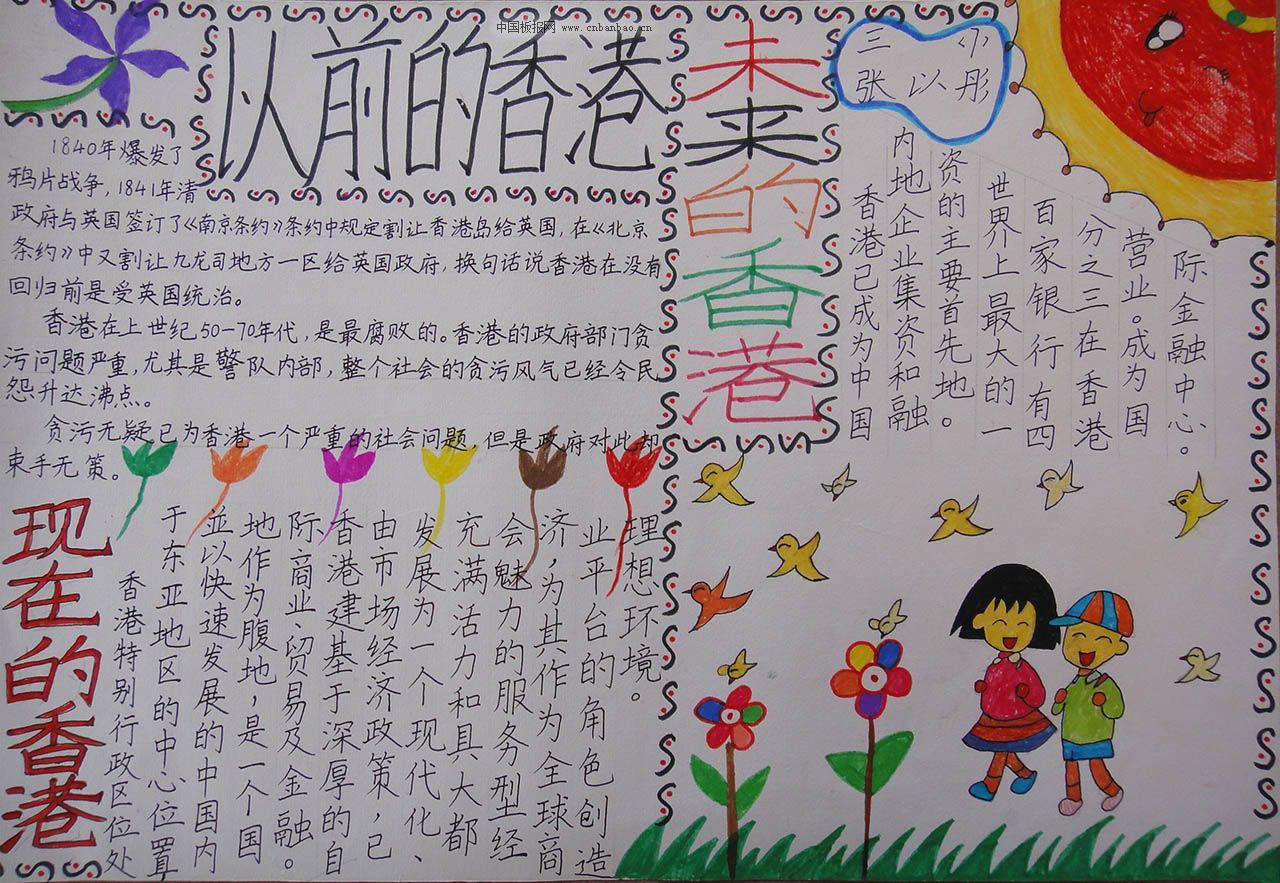 中国板报网 www.cnbanbao.cn
以前的香港
1840年爆发了
鸦片战争,1841年清
政府与英国签订了《南京条约》条约中规定割让香港岛给英国,在《北京
条约》中又割让九龙司地方一区给英国政府,换句话说香港在没有
回归前是受英国统治。
香港在上世纪50-70年代,是最腐败的。香港的政府部门贪
污问题严重,尤其是警队内部,整个社会的贪污风气已经令民
怨升达沸点。
贪污无疑已为香港一个严重的社会问题,但是政府对此却
束手无策。
现在的香港
香港特别行政区位处
于东亚地区的中心位置
並以快速发展的中国内
地作为腹地,是一个国
际商业、贸易及金融。
香港建基于深厚的自
由市场经济政策,已
发展为一个现代化、
充满活力和具大都
会魅力的服务型经
济,为其作为全球商
业平台的角色创造
理想环境。
未来的香港
三 小
张以彤
香港已成为中国
内地企业集资和融
资的主要首先地。
世界上最大的一
百家银行有四
分之三在香港
营业。成为国
际金融中心。